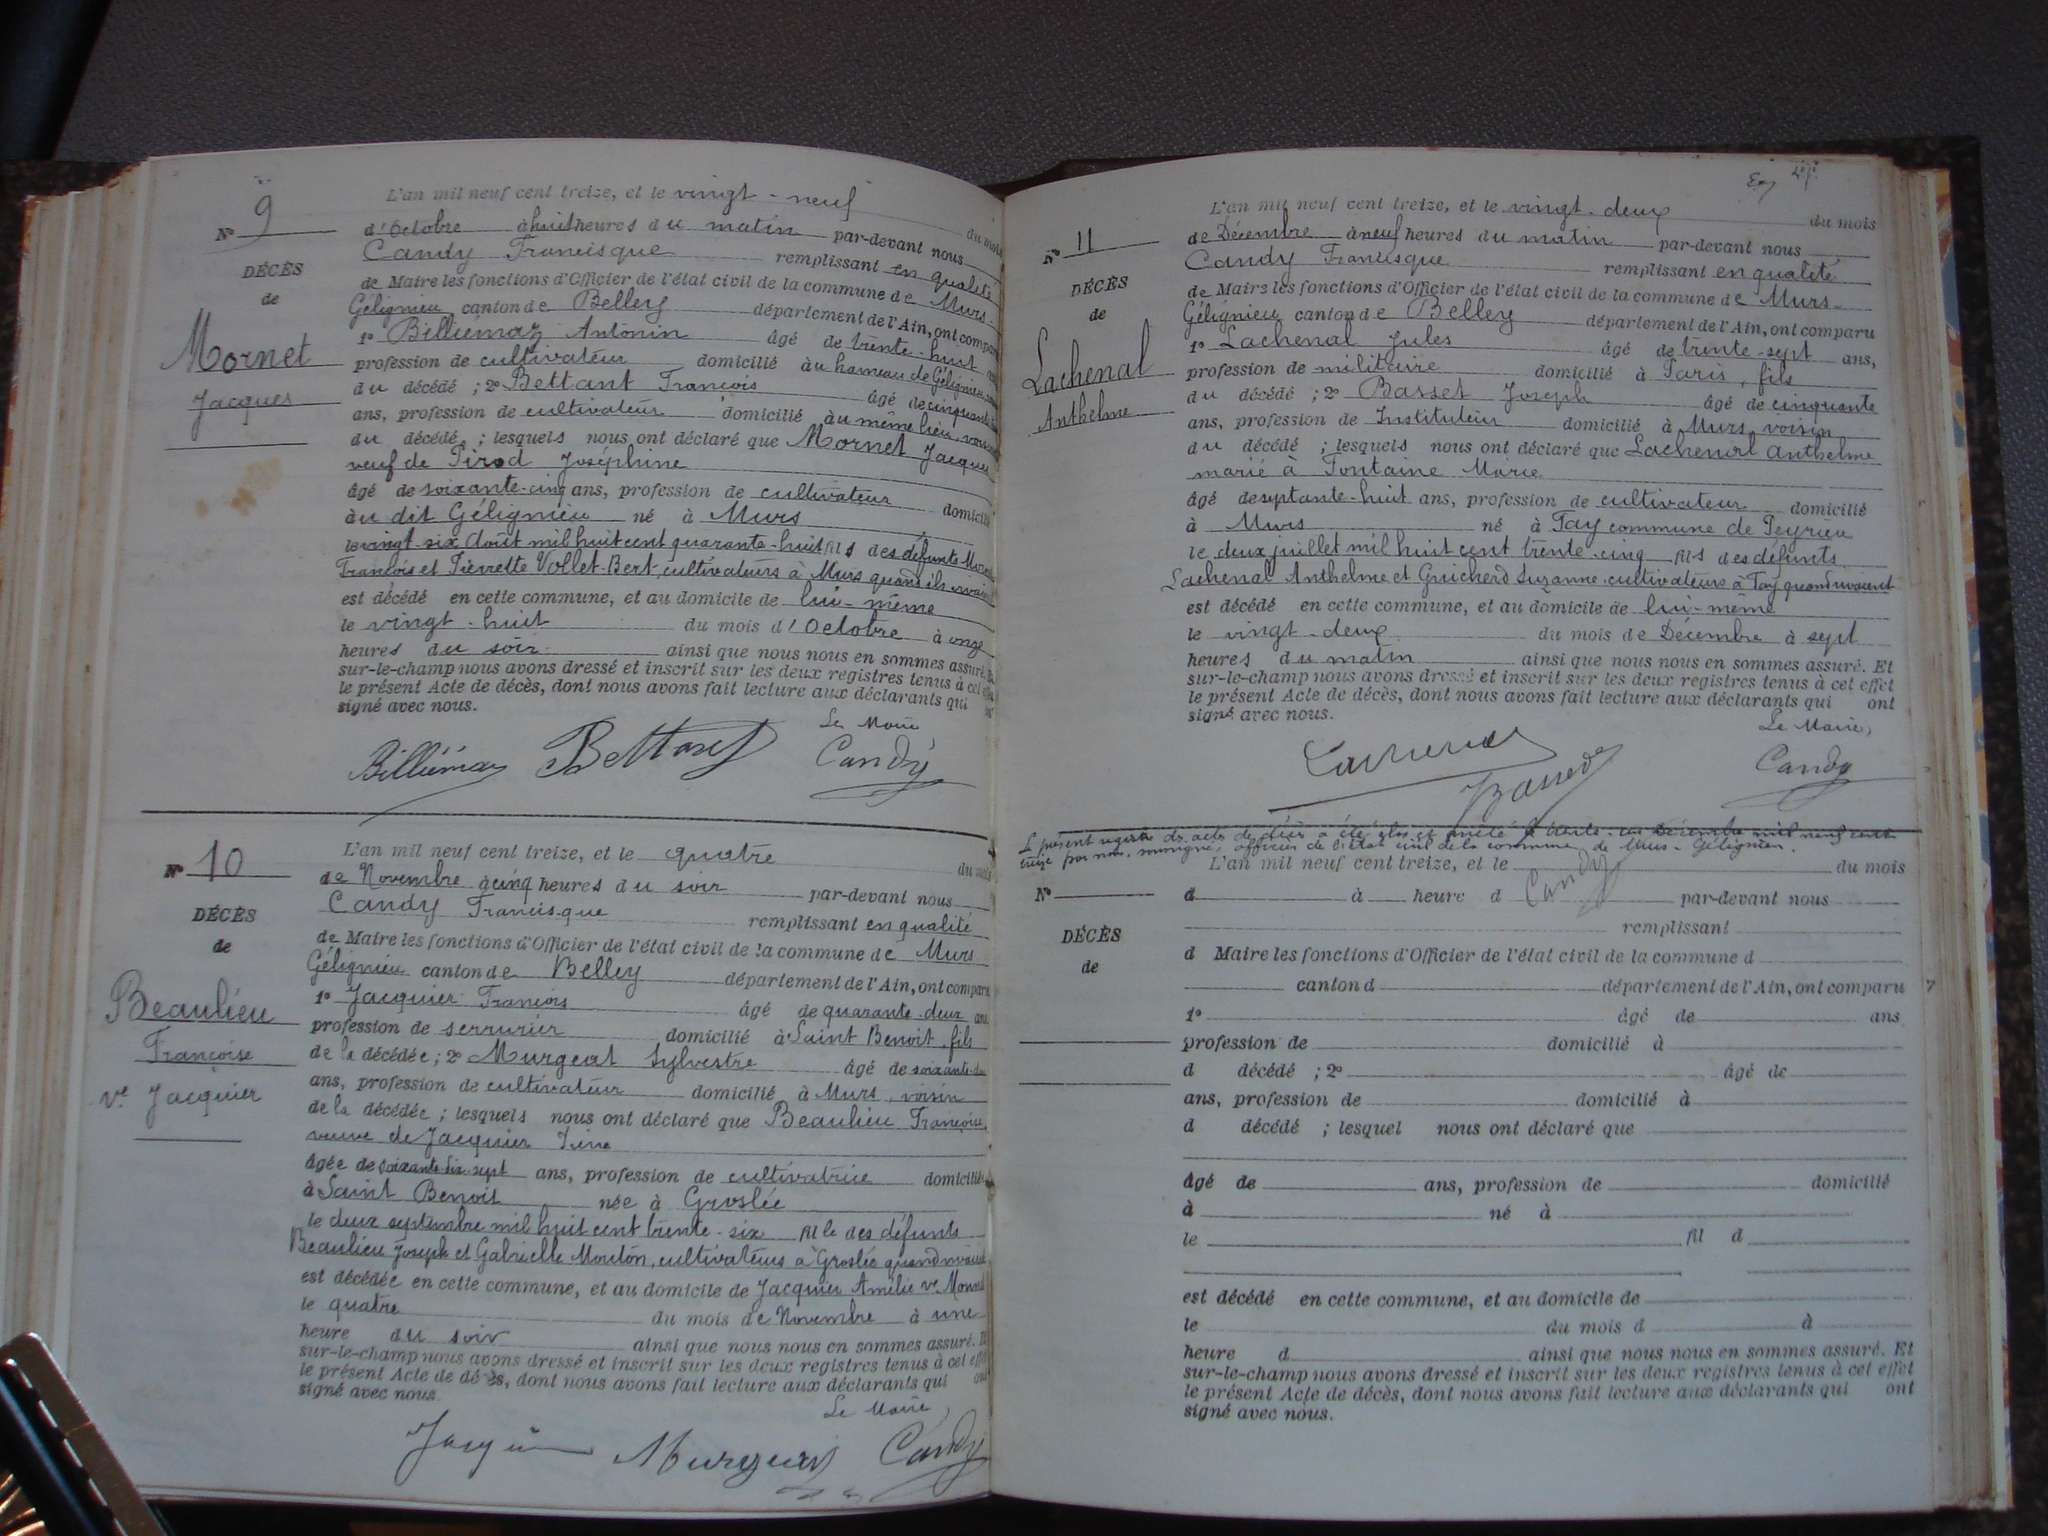 L'an mil neuf cent treize, et le vingt-neuf du mois
N° 9
d'Octobre à huit heures du matin par-devant nous
Candy Francisque remplissant en qualité
DÉCÈS
de Maire les fonctions d'Officier de l'état civil de la commune de Murs
de
Gélignieu canton de Belley département de l'Ain, ont comparu
1° Billiémaz Antonin âgé de trente-huit ans
Mornet
profession de cultivateur domicilié au hameau de Gélignieu
du décédé ; 2° Bettant François âgé de cinquante
Jacques
ans, profession de cultivateur domicilié au même lieu, voisin
du décédé ; lesquels nous ont déclaré que Mornet Jacques
veuf de Pirod Joséphine
âgé de soixante-cinq ans, profession de cultivateur domicilié
au dit Gélignieu né à Murs
le vingt-six août mil huit cent quarante-huit fils des défunts
François et Pierrette Vollet-Bert, cultivateurs à Murs quand ils vivaient
est décédé en cette commune, et au domicile de lui-même
le vingt-huit du mois d'Octobre à onze
heures du soir ainsi que nous nous en sommes assuré. Et
sur-le-champ nous avons dressé et inscrit sur les deux registres tenus à cet effet
le présent Acte de décès, dont nous avons fait lecture aux déclarants qui ont
signé avec nous.
Le Maire
Billiémaz Bettant Candy
L'an mil neuf cent treize, et le quatre du mois
N° 10
de Novembre à cinq heures du soir par-devant nous
Candy Francisque remplissant en qualité
DÉCÈS
de Maire les fonctions d'Officier de l'état civil de la commune de Murs
de
Gélignieu canton de Belley département de l'Ain, ont comparu
1° Jacquier François âgé de quarante-deux ans
Beaulieu
profession de serrurier domicilié à Saint Benoit, fils
Françoise
de la décédée ; 2° Murgeat Sylvestre âgé de soixante
ans, profession de cultivateur domicilié à Murs, voisin
Ve Jacquier
de la décédée ; lesquels nous ont déclaré que Beaulieu Françoise
veuve de Jacquier
âgée de soixante-dix-sept ans, profession de cultivatrice domiciliée
à Saint Benoit née à Groslée
le deux septembre mil huit cent trente-six fille des défunts
Beaulieu Joseph et Gabrielle Mouton, cultivateurs à Groslée quand vivaient
est décédée en cette commune, et au domicile de Jacquier Amélie Ve
le quatre du mois de Novembre à une
heure du soir ainsi que nous nous en sommes assuré. Et
sur-le-champ nous avons dressé et inscrit sur les deux registres tenus à cet effet
le présent Acte de décès, dont nous avons fait lecture aux déclarants qui ont
signé avec nous.
Le Maire,
Jacquier Murgeat Candy
L'an mil neuf cent treize, et le vingt-deux du mois
N° 11
de Décembre à neuf heures du matin par-devant nous
Candy Francisque remplissant en qualité
DÉCÈS
de Maire les fonctions d'Officier de l'état civil de la commune de Murs
de
Gélignieu canton de Belley département de l'Ain, ont comparu
1° Lachenal Jules âgé de trente-sept ans,
Lachenal
profession de militaire domicilié à Paris, fils
du décédé ; 2° Basset Joseph âgé de cinquante
Anthelme
ans, profession de Instituteur domicilié à Murs, voisin
du décédé ; lesquels nous ont déclaré que Lachenal Anthelme
marié à Fontaine Marie
âgé de septante-huit ans, profession de cultivateur domicilié
à Murs né à Fay commune de Peyrieu
le deux juillet mil huit cent trente-cinq fils des défunts
Lachenal Anthelme et Guicherd Suzanne cultivateurs à Fay quand vivaient
est décédé en cette commune, et au domicile de lui-même
le vingt-deux du mois de Décembre à sept
heures du matin ainsi que nous nous en sommes assuré. Et
sur-le-champ nous avons dressé et inscrit sur les deux registres tenus à cet effet
le présent Acte de décès, dont nous avons fait lecture aux déclarants qui ont
signé avec nous.
Le Maire,
Lachenal Basset Candy
Le présent registre des actes de décès a été clos et arrêté le trente-un Décembre mil neuf cent
treize par nous, soussigné, officier de l'état civil de la commune de Murs-Gélignieu.
Candy
L'an mil neuf cent treize, et le du mois
N° d à heure d par-devant nous
remplissant
DÉCÈS
d Maire les fonctions d'Officier de l'état civil de la commune d
de
canton d département de l'Ain, ont comparu
1° âgé de ans
profession de domicilié à
d décédé ; 2° âgé de
ans, profession de domicilié à
d décédé ; lesquel nous ont déclaré que
âgé de ans, profession de domicilié
à né à
le fil d
est décédé en cette commune, et au domicile de
le du mois d à
heure d ainsi que nous nous en sommes assuré. Et
sur-le-champ nous avons dressé et inscrit sur les deux registres tenus à cet effet
le présent Acte de décès, dont nous avons fait lecture aux déclarants qui ont
signé avec nous.